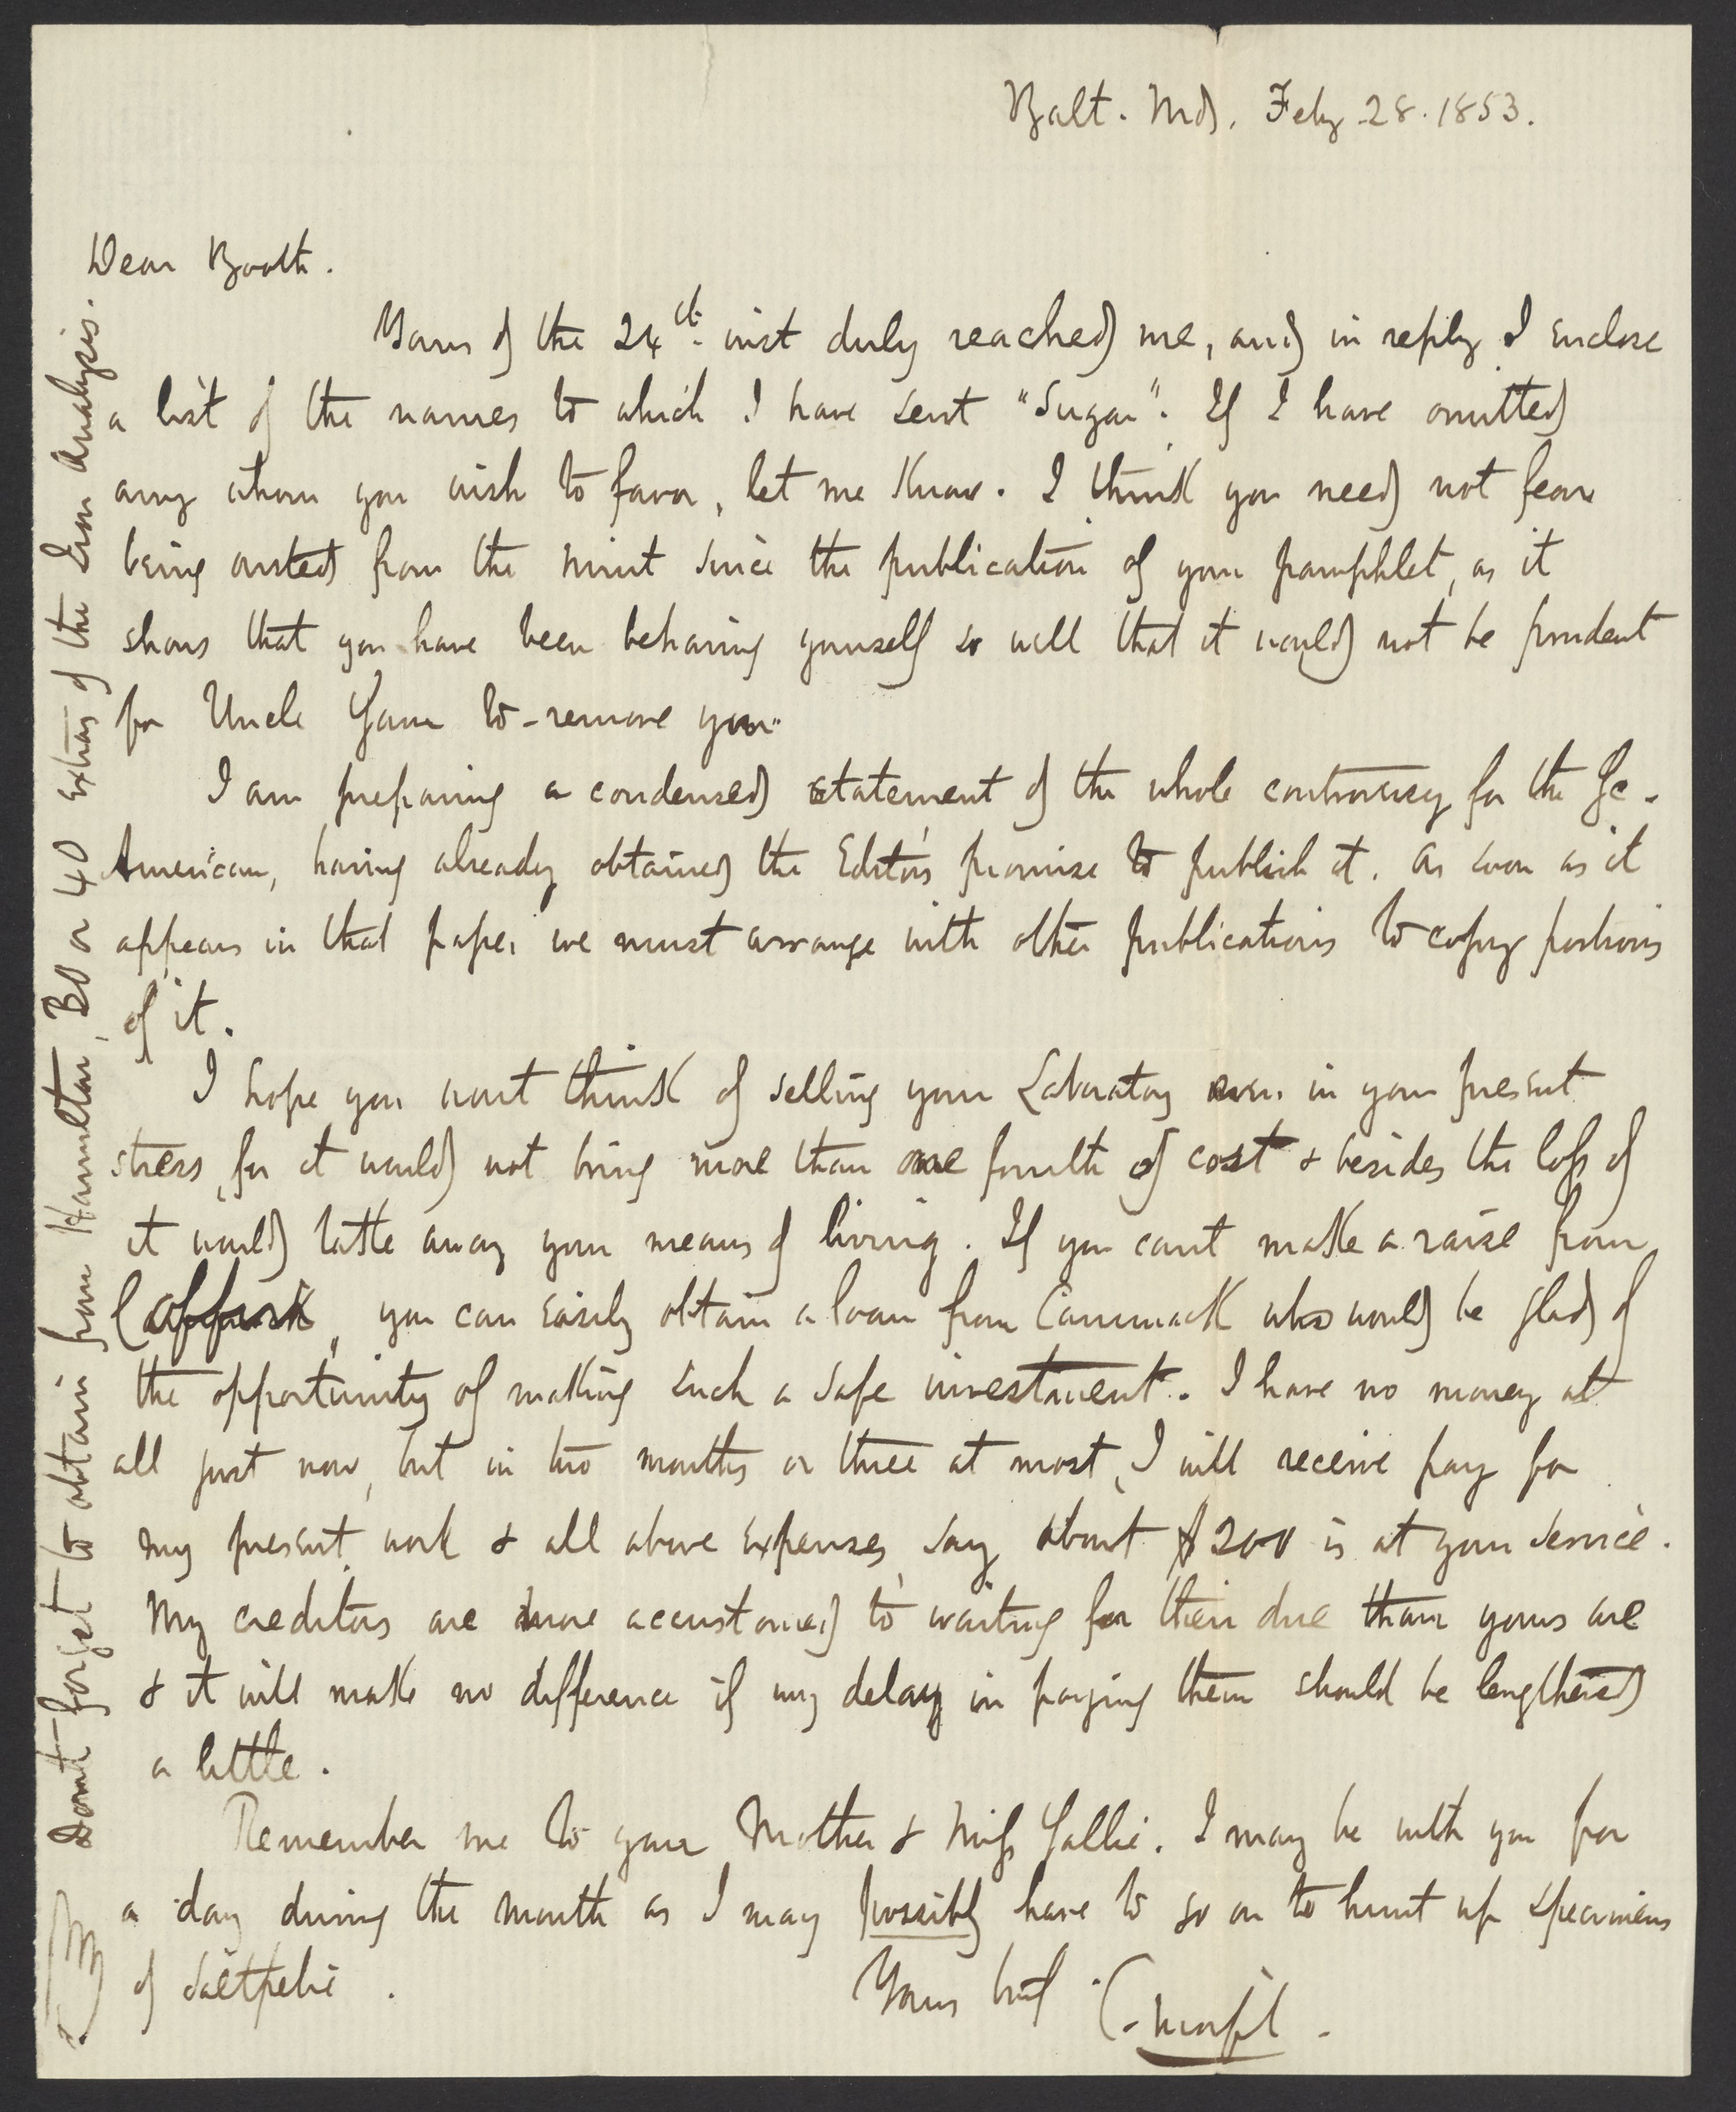 Balt. Md. Feby 28. 1853.
Dear Booth.
Yours of the 24th inst duly reached me, and in reply I enclose
a list of the names to which I have sent "Sugar". If I have omitted
any whom you wish to favor, let me know. I think you need not fear
being ousted from the mint since the publication of your pamphlet, as it
shows that you have been behaving yourself so well that it would not be prudent
for Uncle Sam to remove you.
I am preparing a condensed statement of the whole controversy for the Sc.
American, having already obtained the Editor's promise to publish it. As soon as it
appears in that paper we must arrange with other publications to copy portions
of it.
I hope you wont think of selling your Laboratory even in your present
stress, for it would not bring more than one fourth of cost & besides the loss of
it would take away your means of living. If you cant make a raise from
you can easily obtain a loan from Cammack who would be glad of
the opportunity of making such a safe investment. I have no money at
all just now, but in two months or three at most, I will receive pay for
my present work & all above expenses, say about $200 is at your service.
My creditors are more accustomed to waiting for their due than yours are
& it will make no difference if my delay in paying them should be lengthened
a little.
Remember me to your Mother & Miss Sallie. I may be with you for
a day during the month as I may possibly have to go on to hunt up specimens
of Saltpetre.
Yours truly C. Morfit.
Dont forget to obtain from Hamilton, 30 or 40 extras of the Iron Analysis.